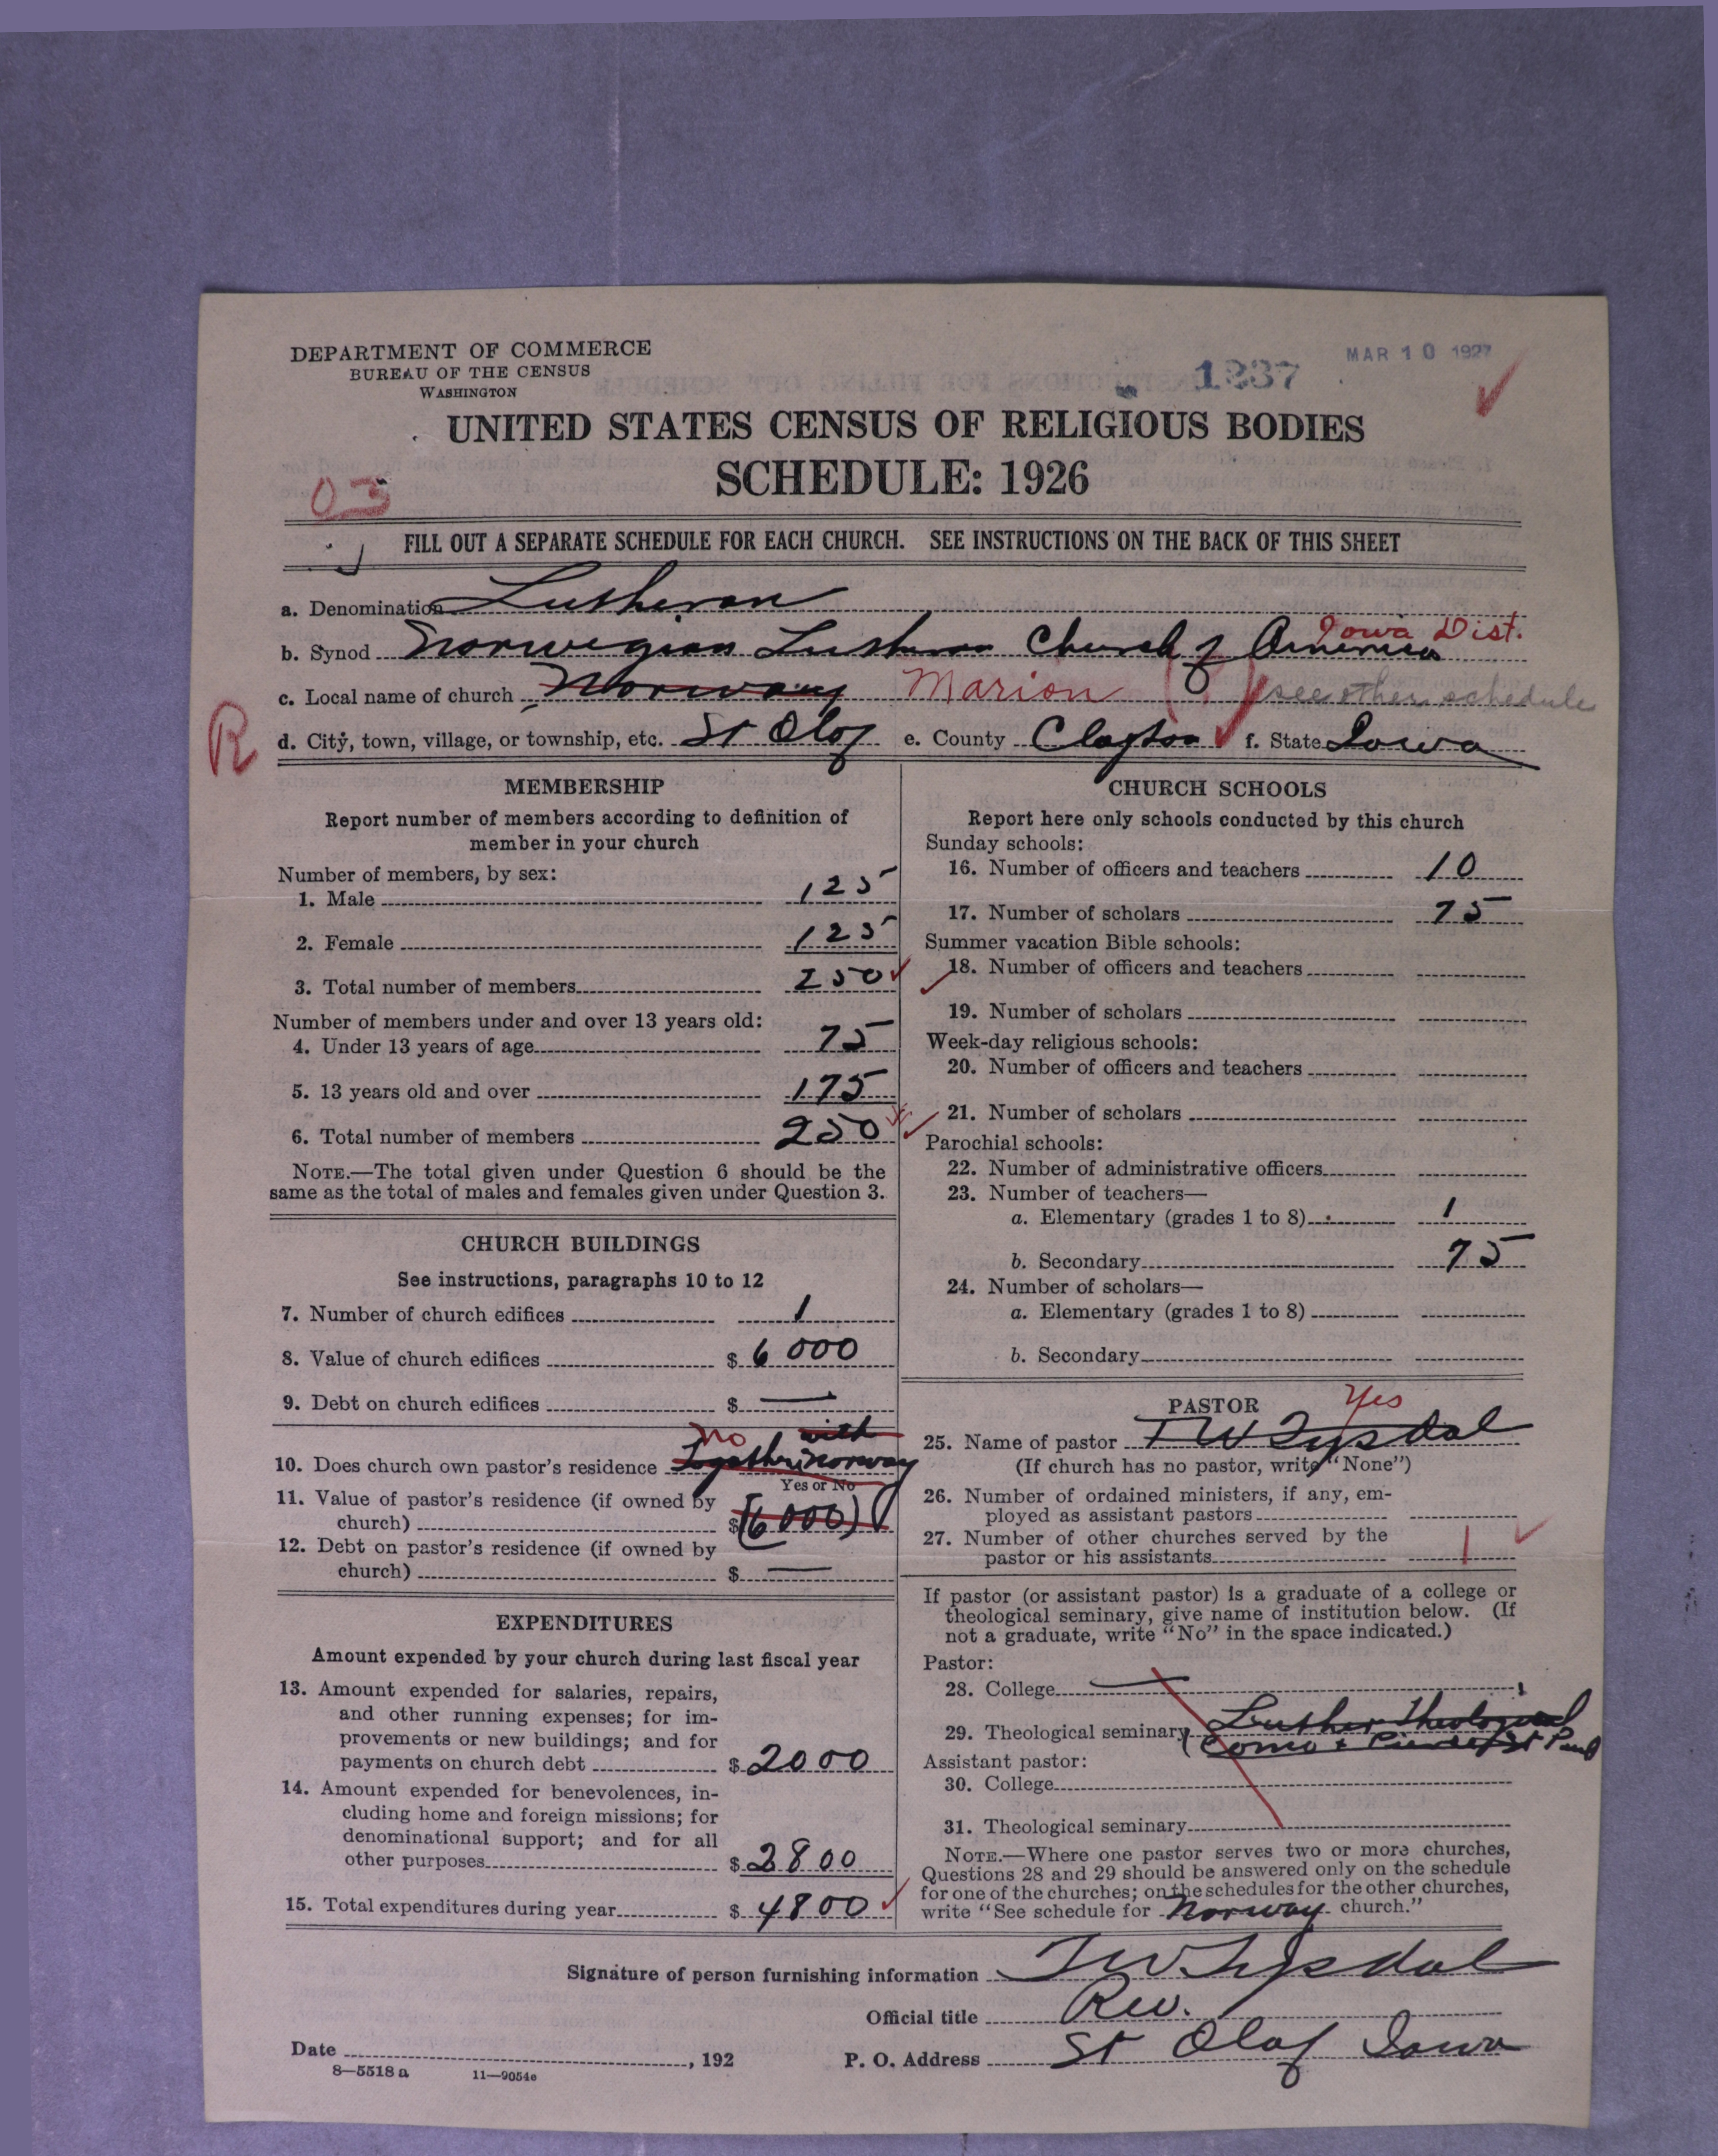 DEPARTMENT OF COMMERCE
BUREAU OF THE CENSUS
WASHINGTON
1237
MAR 10 1927
UNITED STATES CENSUS OF RELIGIOUS BODIES
SCHEDULE: 1926
03
FILL OUT A SEPARATE SCHEDULE FOR EACH CHURCH. SEE INSTRUCTIONS ON THE BACK OF THIS SHEET
a. Denomination Lutheran
Iowa Dist.
b. Synod Norwegian Lutheran Church of America
c. Local name of church Norway Marion see other schedule
R
d. City, town, village, or township, etc. St Olaf e. County Clayton f. State Iowa
MEMBERSHIP
Report number of members according to definition of
member in your church
Number of members, by sex:
1. Male 125
2. Female 125
3. Total number of members 250
Number of members under and over 13 years old:
4. Under 13 years of age 75
5. 13 years old and over 175
6. Total number of members 250
NOTE.—The total given under Question 6 should be the
same as the total of males and females given under Question 3.
CHURCH BUILDINGS
See instructions, paragraphs 10 to 12
7. Number of church edifices 1
8. Value of church edifices $ 6000
9. Debt on church edifices $ —
no with
10. Does church own pastor's residence Together Norway
Yes or No
11. Value of pastor's residence (if owned by
church) $ (6000)
12. Debt on pastor's residence (if owned by
church) $ —
EXPENDITURES
Amount expended by your church during last fiscal year
13. Amount expended for salaries, repairs,
and other running expenses; for im-
provements or new buildings; and for
payments on church debt $ 2000
14. Amount expended for benevolences, in-
cluding home and foreign missions; for
denominational support; and for all
other purposes $ 2800
15. Total expenditures during year $ 4800
CHURCH SCHOOLS
Report here only schools conducted by this church
Sunday schools:
16. Number of officers and teachers 10
17. Number of scholars 75
Summer vacation Bible schools:
18. Number of officers and teachers
19. Number of scholars
Week-day religious schools:
20. Number of officers and teachers
21. Number of scholars
Parochial schools:
22. Number of administrative officers
23. Number of teachers—
a. Elementary (grades 1 to 8) 1
b. Secondary 75
24. Number of scholars—
a. Elementary (grades 1 to 8)
b. Secondary
PASTOR Yes
25. Name of pastor T W Tysdal
(If church has no pastor, write "None")
26. Number of ordained ministers, if any, em-
ployed as assistant pastors
27. Number of other churches served by the
pastor or his assistants 1
If pastor (or assistant pastor) is a graduate of a college or
theological seminary, give name of institution below. (If
not a graduate, write "No" in the space indicated.)
Pastor:
28. College —
29. Theological seminary Luther Theological
(Como & Pierce St Paul
Assistant pastor:
30. College
31. Theological seminary
NOTE.—Where one pastor serves two or more churches,
Questions 28 and 29 should be answered only on the schedule
for one of the churches; on the schedules for the other churches,
write "See schedule for Norway church."
Signature of person furnishing information T W Tysdal
Official title Rev.
Date , 192 P. O. Address St Olaf Iowa
8—5518 a 11—9054e